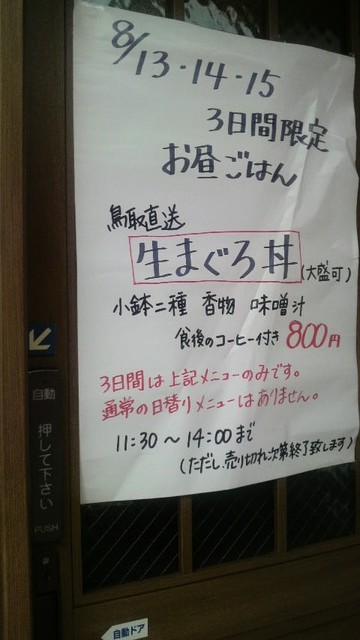 8/13・14・15
3日間限定
お昼ごはん
鳥取直送
生まぐろ丼(大盛可)
小鉢二種 香物 味噌汁
食後のコーヒー付き 800円
3日間は上記メニューのみです。
通常の日替りメニューはありません。
11:30〜14:00まで
(ただし、売り切れ次第終了致します)
自動
押して下さい
PUSH
自動ドア